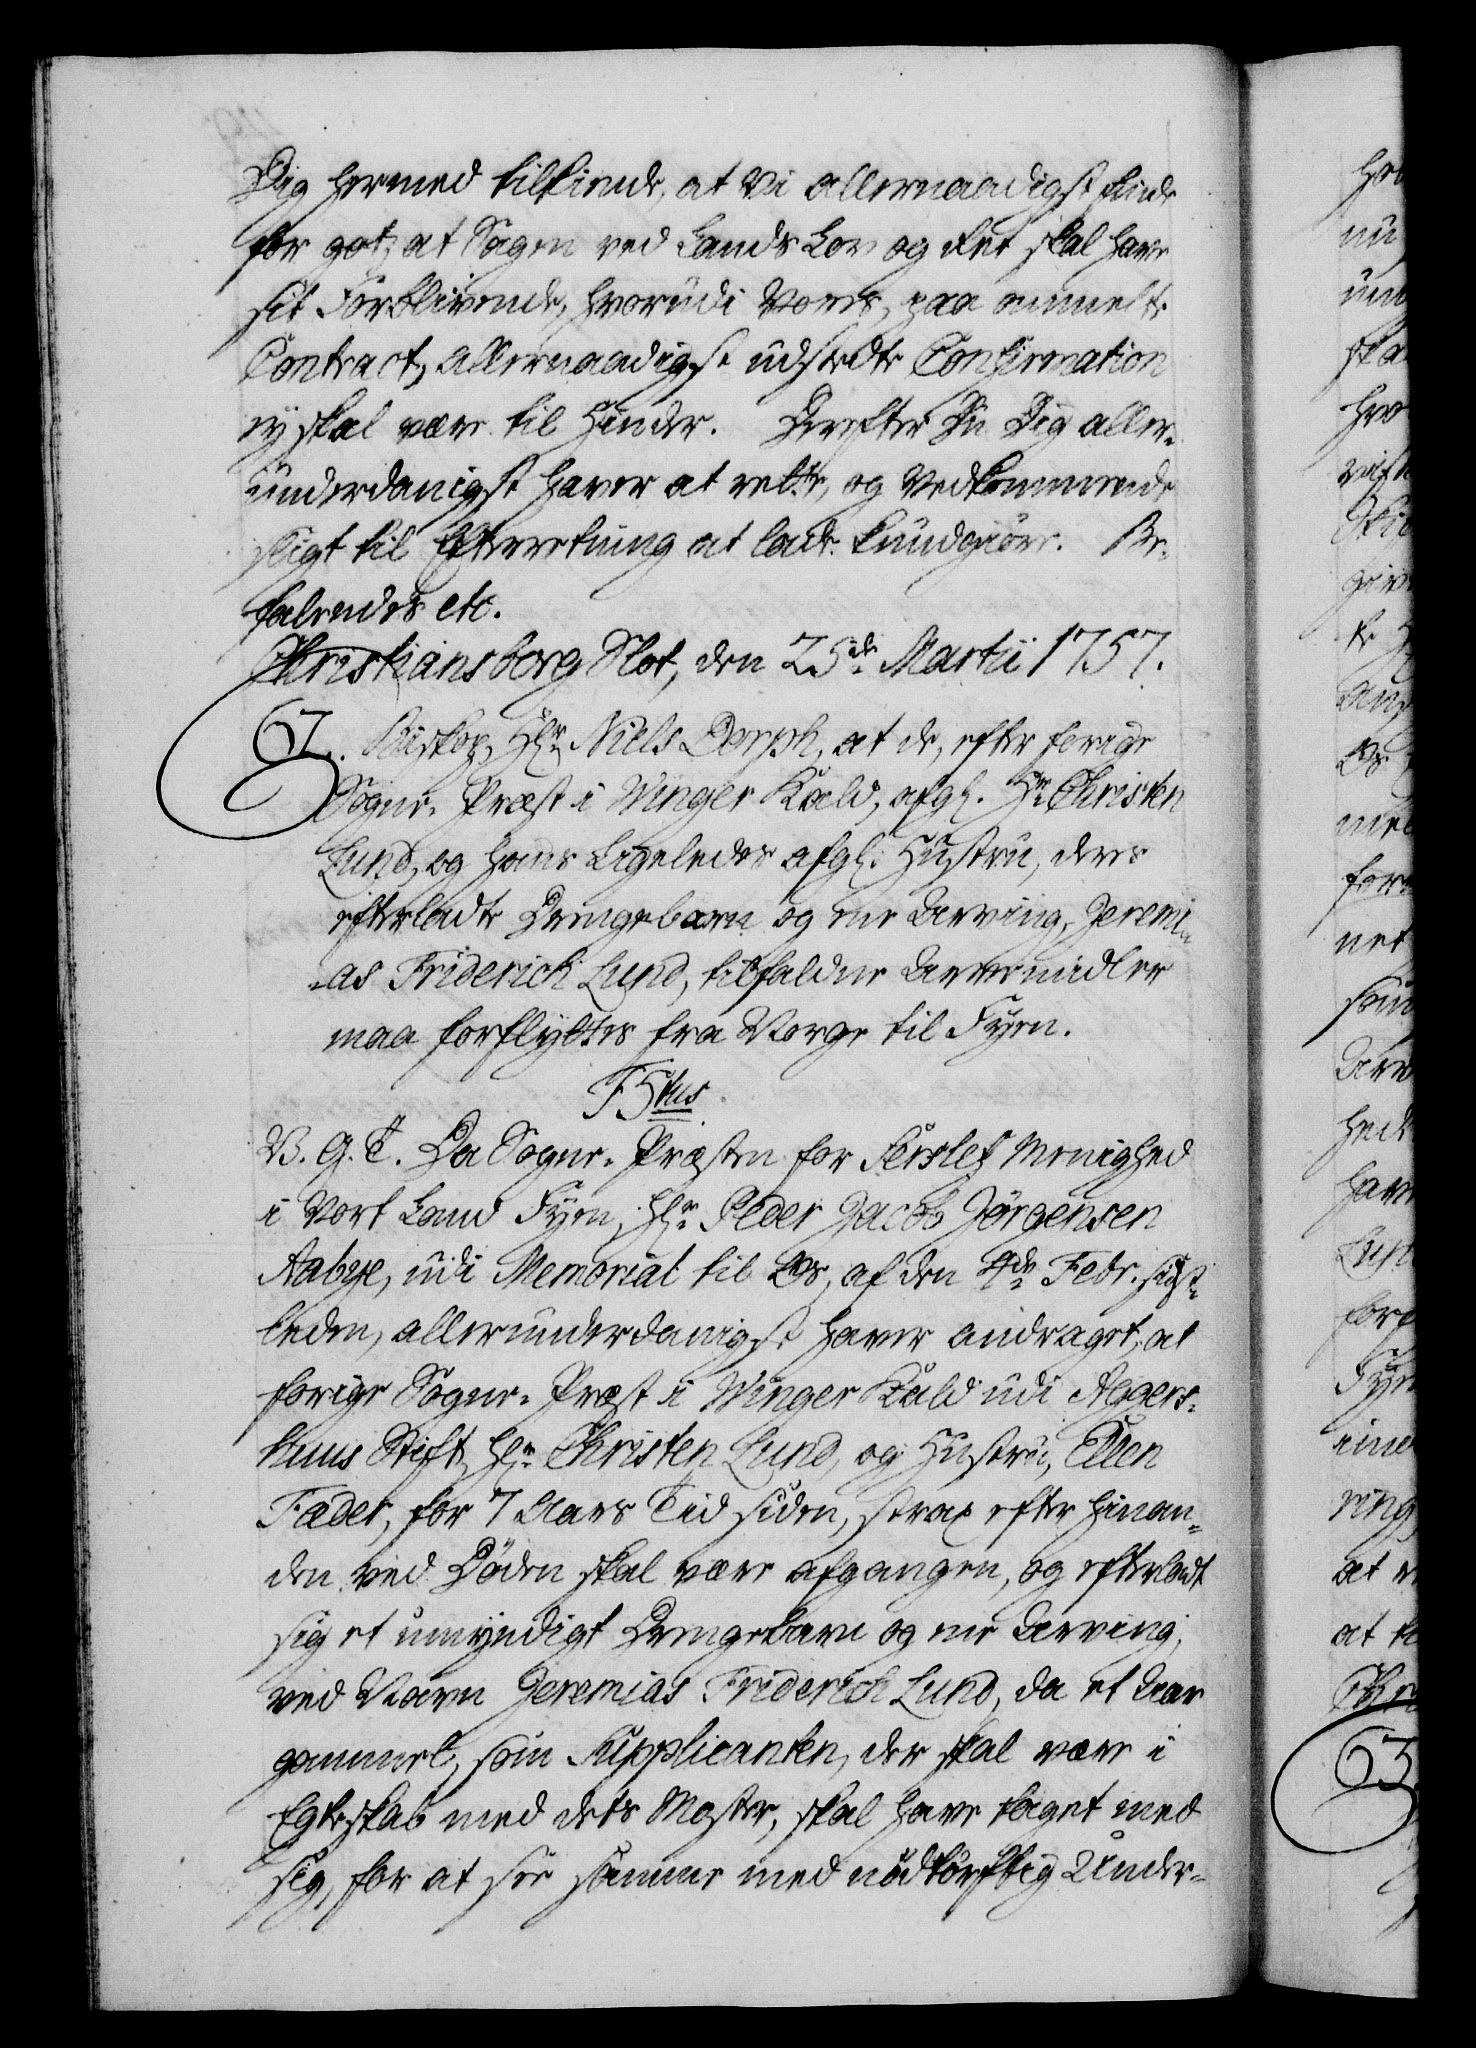 Dig hermed tilkiende, at Vi allernaadigst finde
for got, at Sagen ved Lands Lov og Ret skal have
sit Forblivende, hvorudi Vores, paa ommelte
Contract, allernaadigst udstedte Confirmation
ey skal være til Hinder. Derefter Du Dig aller-
underdanigst haver at rette, og Vedkommende
sligt til Efterretning at lade kundgiøre. Be-
falendes etc.
Christiansborg Slot, den 25de Martii 1757.
62. Biskop, Hr. Niels Dorph, at de, efter forige
Sogne-Præst i Winger Kald, afg. Hr. Christen
Lund, og hans ligeledes afg. Hustru, deres
efterladte Drengebarn og ene Arving, Jeremi-
-as Friderich Lund, tilfaldne Arvemidler
maa forflyttes fra Norge til Fyen.
F5tus
V. G. T. Da Sogne-Præsten for Ferslef Menighed
i Vort Land Fyen, Hr. Peder Jacob Jørgensen
Aabye, udi Memorial til Os, af den 4de Febr. sidst-
leden, allerunderdanigst haver andraget, at
forige Sogne-Præst i Winger Kald udi Agers-
huus Stift, Hr. Christen Lund, og Hustru, Ellen
Fæder, for 7 Aars Tid siden, strax efter hinan-
den ved Døden skal være afgangen, og efterladt
sig et umyndigt Drengebarn og ene Arving,
ved Navn Jeremias Friderich Lund, da et Aar
gammel, som Supplicanten, der skal være i
Egteskab med dets Moster, skal have taget med
sig, for at see samme med nødtørftig Under-
63.